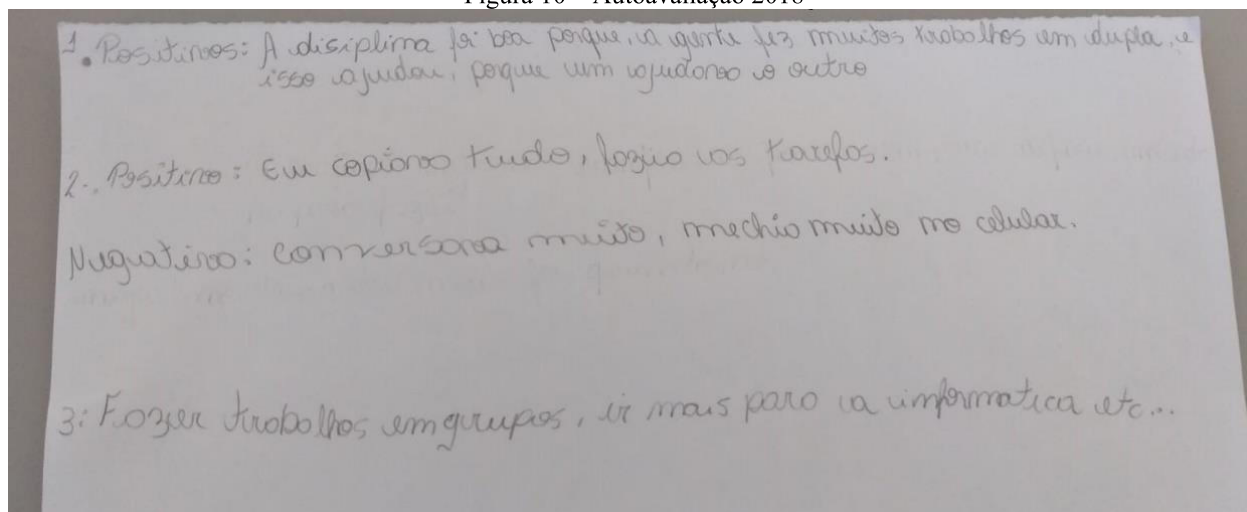 Figura 10 – Autoavaliação 2018
1. Positivos: A disiplima foi boa porque, a gente fez muitos trabalhos em dupla, e
isso ajudou, porque um ajudava o outro
2. Positivo: Eu copiava tudo, fazia as tarefas.
Negativo: Conversava muito, mechia muito no celular.
3: Fazer trabalhos em grupos, ir mais para a informatica etc...